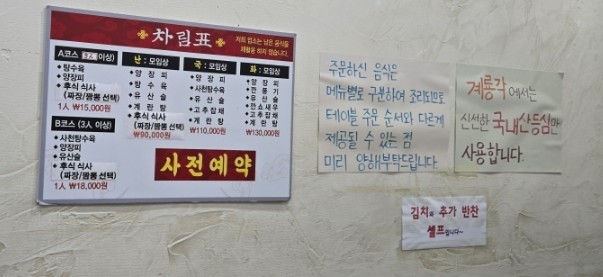 차림표
저희 업소는 남은 음식을
재활용 하지 않습니다.
A코스 (3인 이상)
탕수육
양장피
후식 식사
(짜장/짬뽕 선택)
1人 ₩15,000원
B코스 (3人 이상)
사천탕수육
양장피
유산슬
후식 식사
(짜장/짬뽕 선택)
1人 ₩18,000원
난 : 모임상
양 장 피
탕 수 육
유 산 슬
계 란 탕
₩90,000원
국 : 모임상
양 장 피
사천탕수육
유 산 슬
고추잡채
계 란 탕
₩110,000원
화 : 모임상
양 장 피
깐 풍 기
유 산 슬
깐쇼새우
고추잡채
계 란 탕
₩130,000원
사전예약
주문하신 음식은
메뉴별로 구분하여 조리되므로
테이블 주문 순서와 다르게
제공될 수 있는 점
미리 양해부탁드립니다
계룡각에서는
신선한 국내산등심만
사용합니다.
김치와 추가 반찬
셀프입니다~